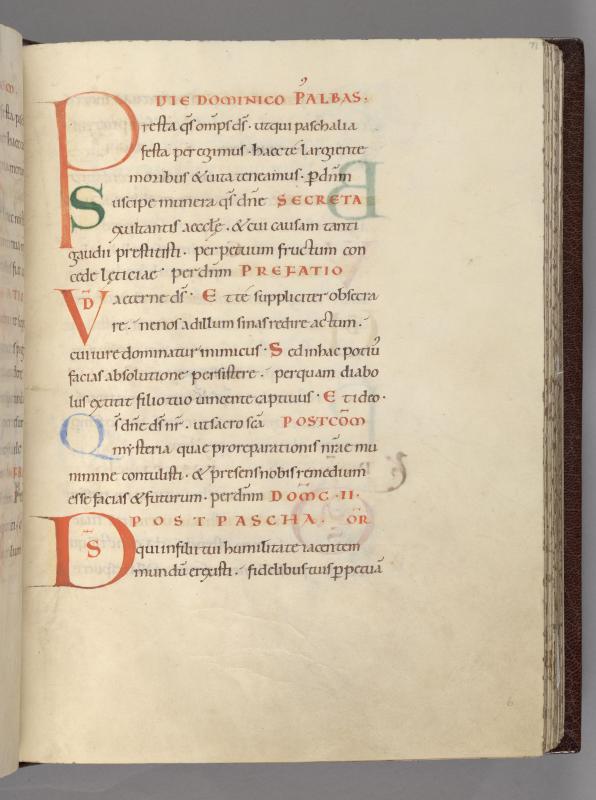 DIE DOMINICO P' ALBAS;
Presta qs omps ds. ut qui paschalia
festa peregimus. haec te largiente
moribus & uita teneamus. p dnm
Suscipe munera qs dne SECRETA
exultantis aecclę. & cui causam tanti
gaudii prestitisti. perpetuum fructum con
cede lęticiae. per dnm PREFATIO
VD aeterne ds. Et te suppliciter obsecra
re. ne nos ad illum sinas redire actum.
cui iure dominatur inimicus. Sed in hac potiu'
facias absolutione persistere. per quam diabo
lus extitit filio tuo uincente captiuus. Et ideo.
Qs dne ds nr. ut sacrosca POSTCOM
mysteria quae pro reparationis nrae mu
nimine contulisti. & presens nobis remedium
esse facias & futurum. per dnm DOMC. II.
POST PASCHA. OR
DS qui in filii tui humilitate iacentem
mundu erexisti. fidelibus tuis perpetua